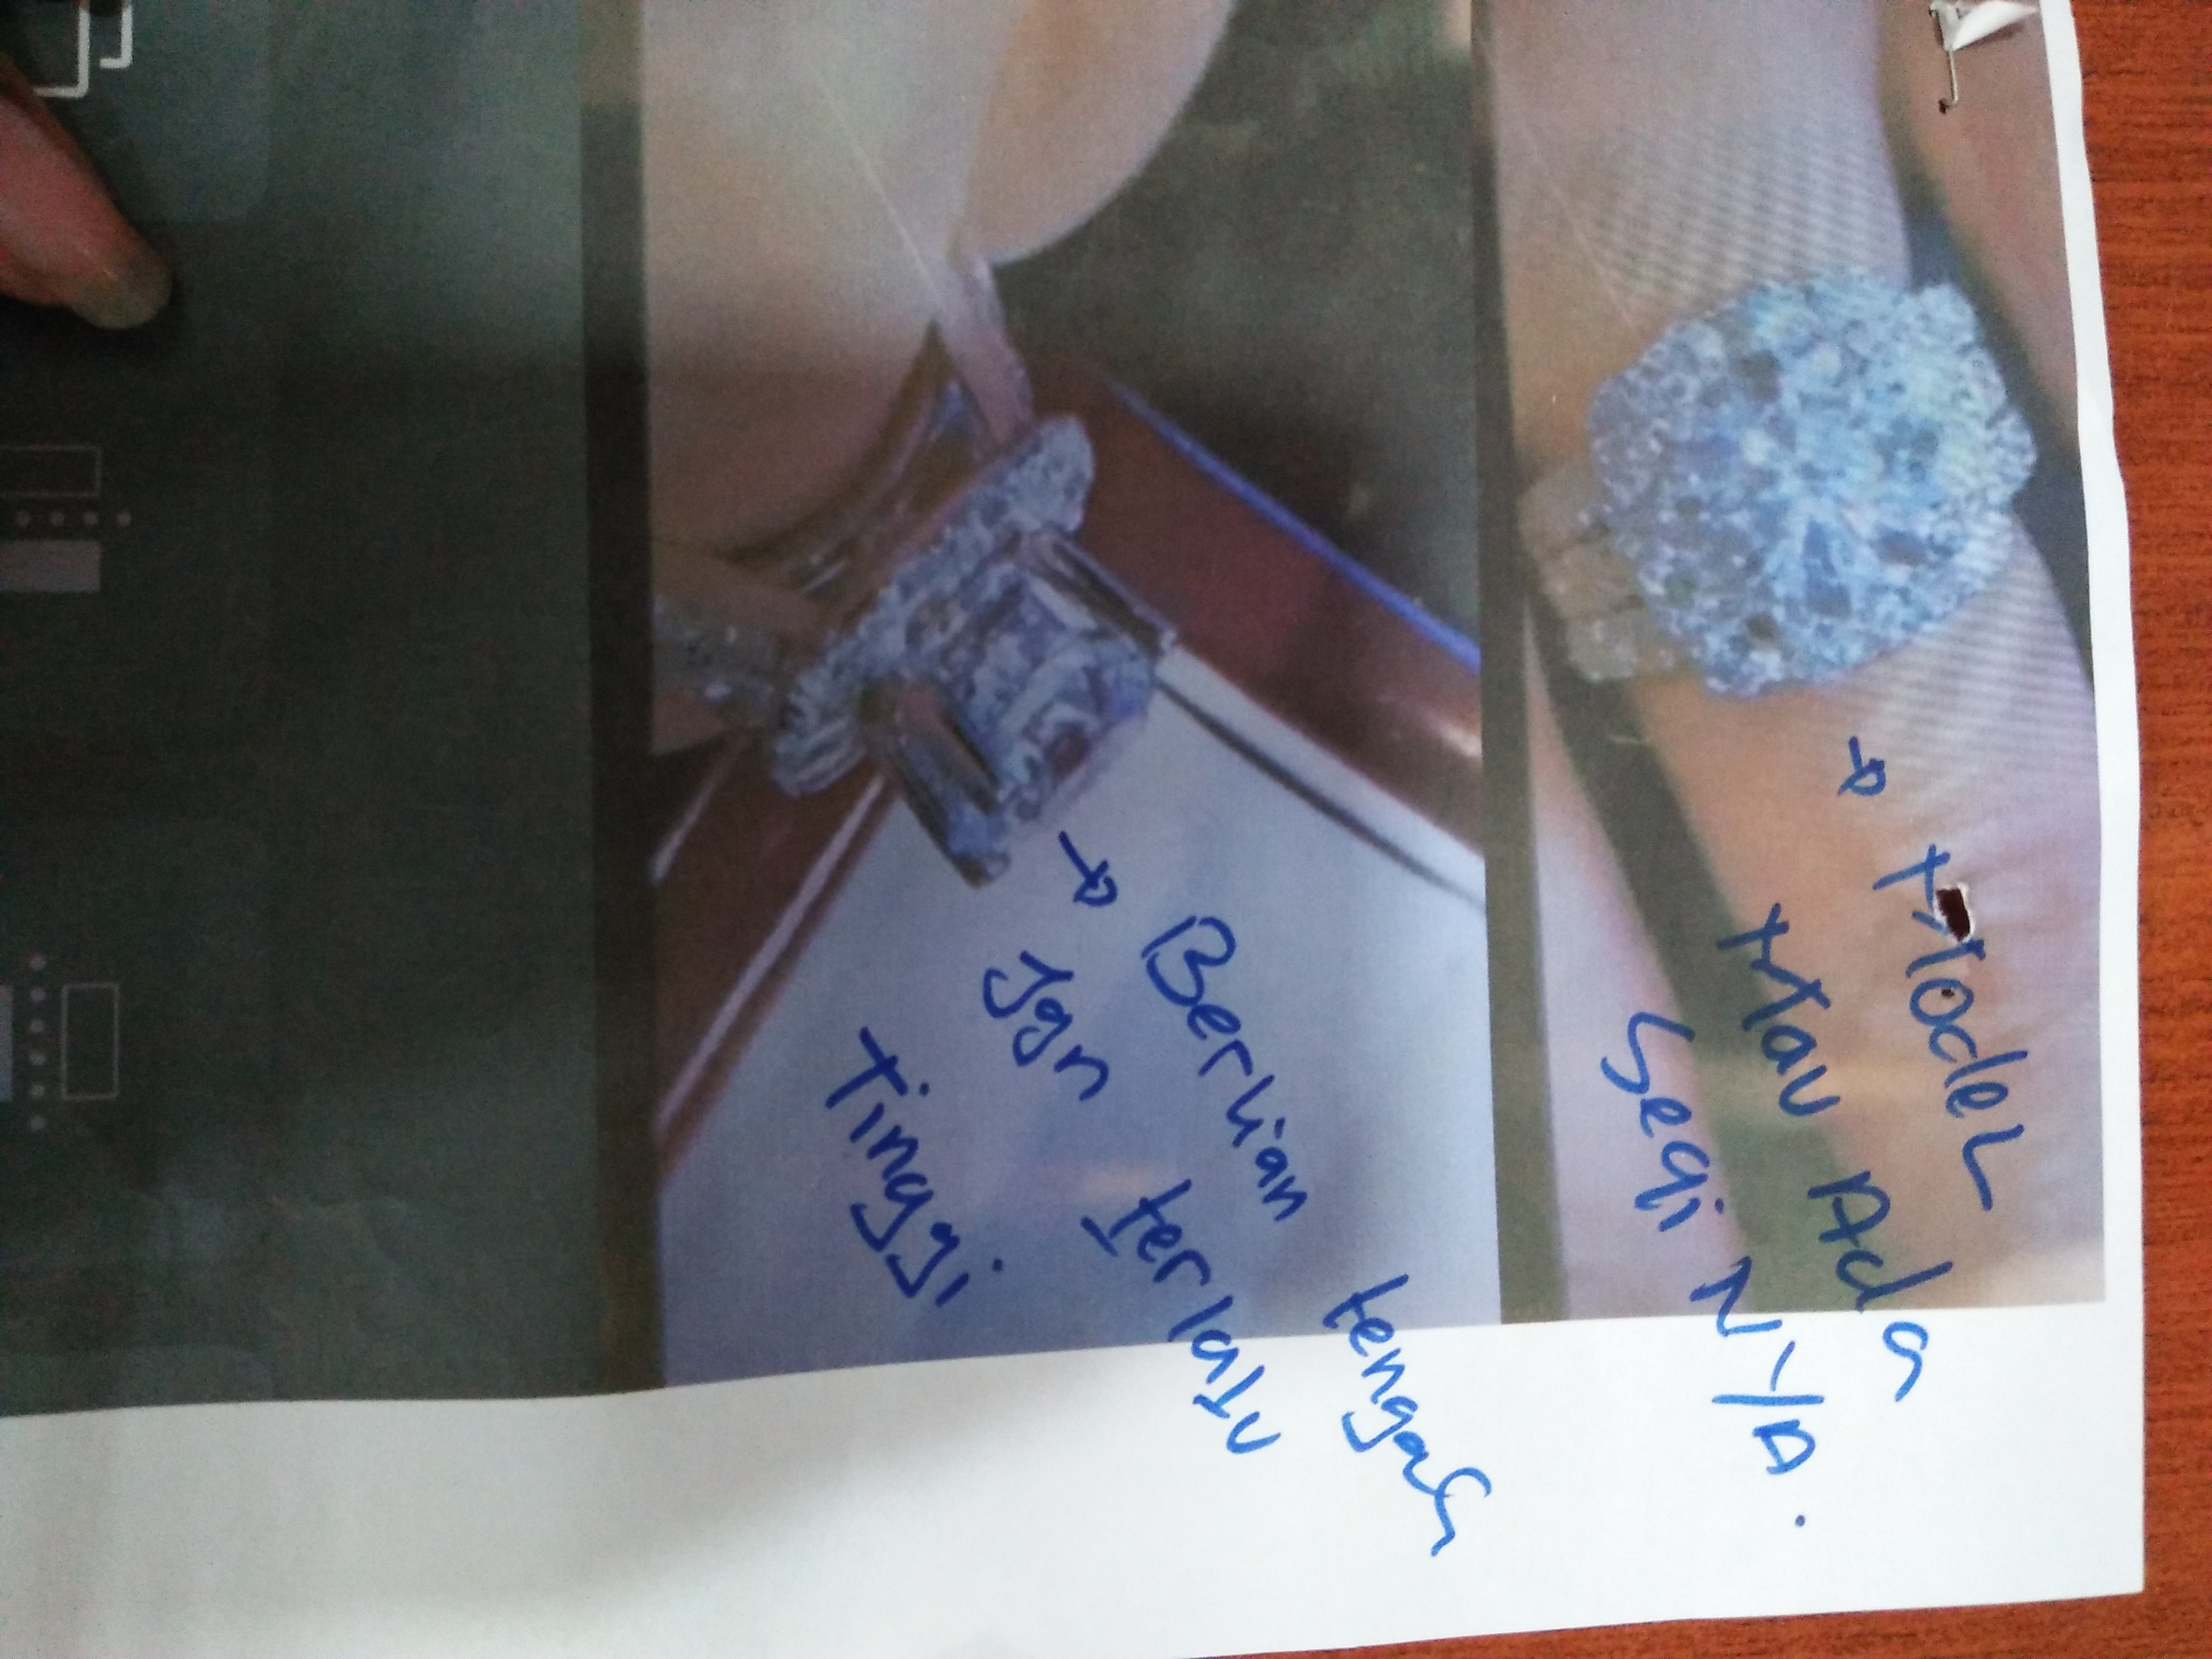 → Model
Mau Ada
Segi Nya.
→ Berlian tengah
Jgn terlalu
Tinggi